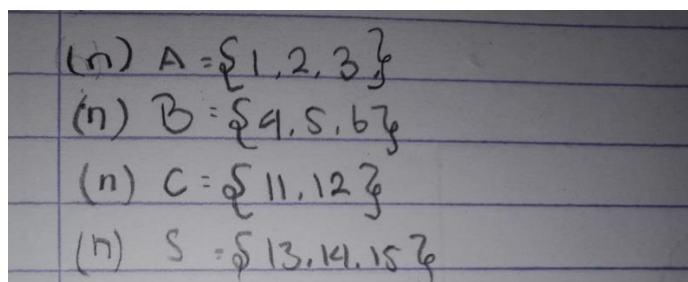 (n) A = {1, 2, 3}
(n) B = {4, 5, 6}
(n) C = {11, 12}
(n) S = {13, 14, 15}